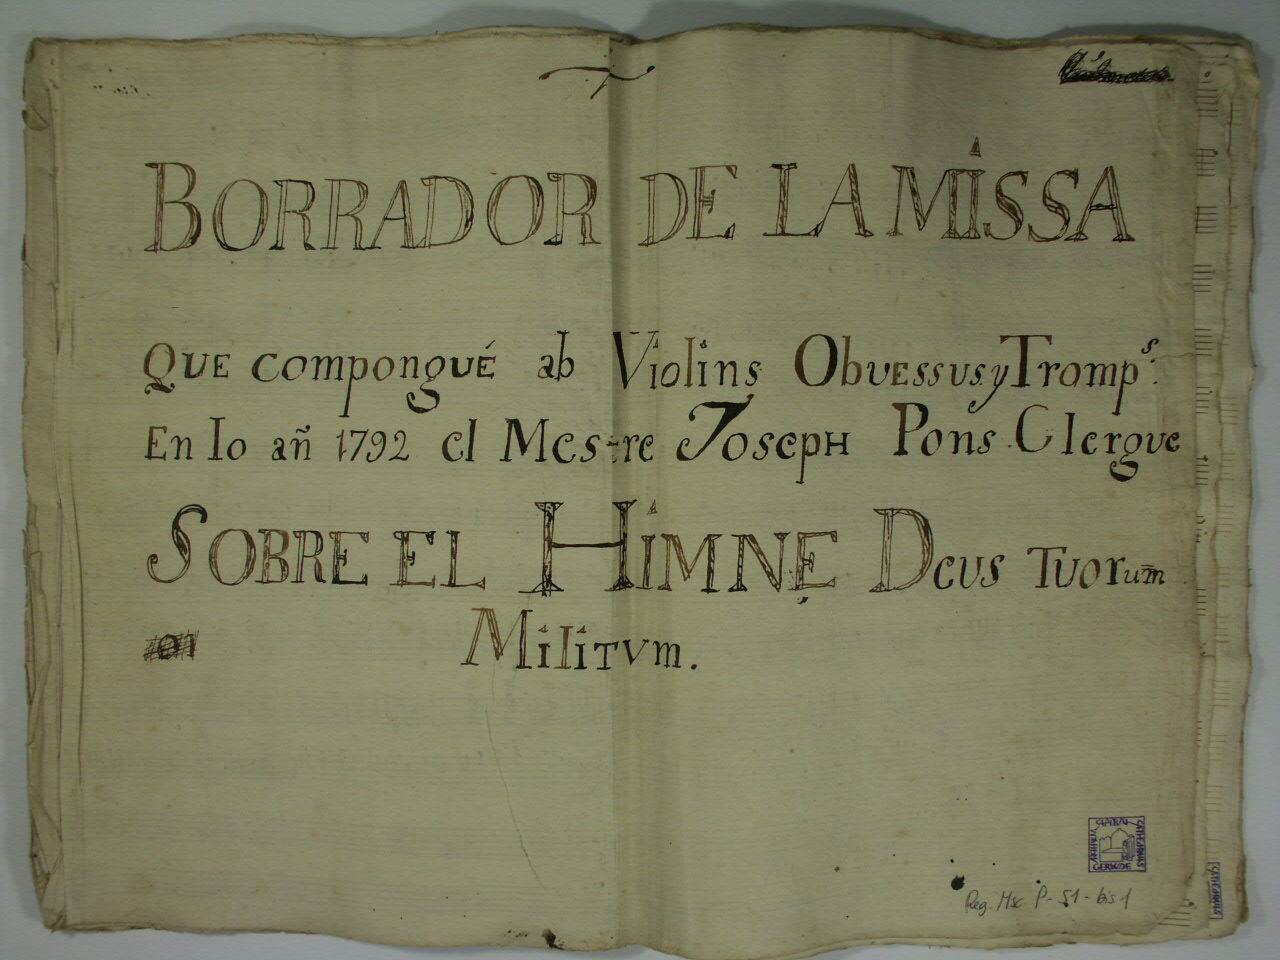 BORRADOR DE LA MISSA
QUE compongué ab Violins Obuessus y Tromp.s
En lo añ 1792 el Mestre Joseph Pons Clergue
SOBRE EL HIMNE Deus Tuorum
Militum.
CATHEDRALIS
GERUNDE
Reg. Msc P-51-bis1